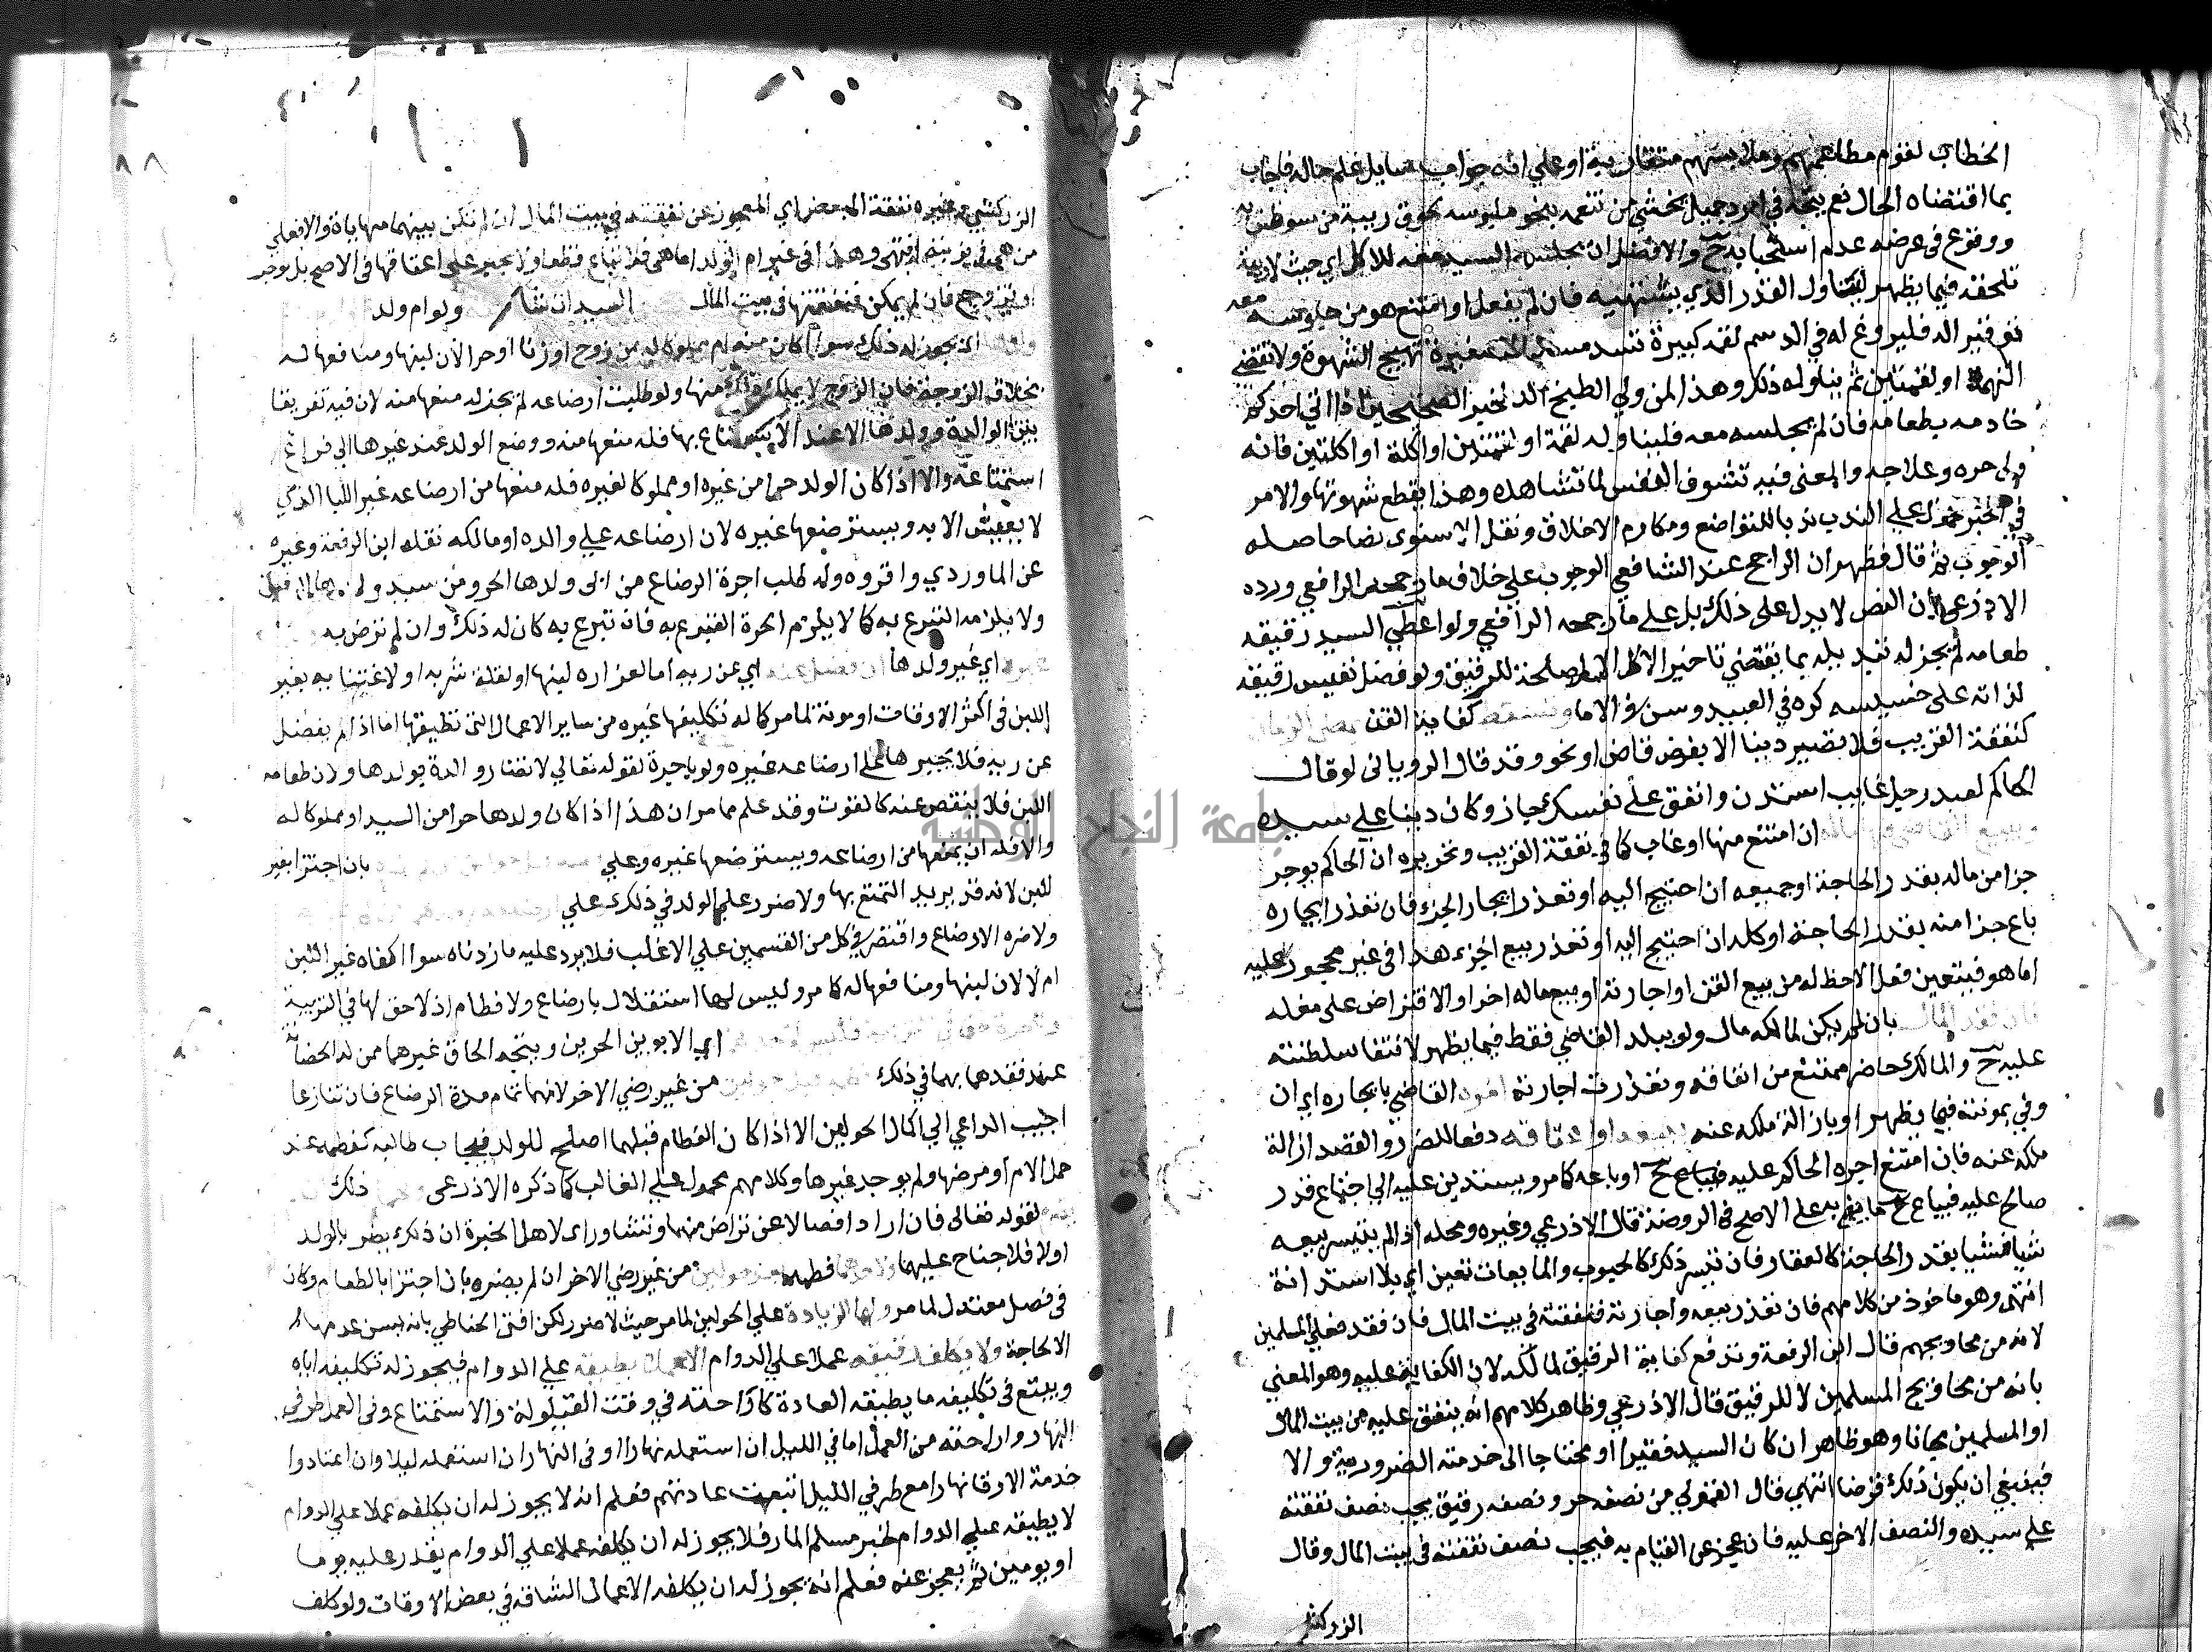 الخطاب لقوم مطاعمهم وملابسهم متقاربة او على انه جواب سايل علم حاله فاجاب
بما اقتضاه الحال نعم يتجه في امرد جميل يخشى من تنعمه بنحو ملبوسه لحوق ريبة من سوظن به
ووقوع في عرضه عدم استحبابه ح والافضل ان يجلس السيد معه للاكل اي حيث لا ريبة
تلحقه فيما يظهر ليتناول القدر الذي يشتهيه فان لم يفعل او امتنع هو من جلوسه معه
توقيرا له فليروغ له في الدسم لقمة كبيرة تسد مسدا لا صغيرة تهيج الشهوة ولا تقضي
النهمة او لقمتين ثم يناوله ذلك وهذا لمن ولي الطبخ اكد لخبر الصحيحين اذا اتى احدكم
خادمه بطعامه فان لم يجلسه معه فليناوله لقمة او لقمتين او اكلة او اكلتين فانه
ولي حره وعلاجه والمعنى فيه تشوف النفس لما تشاهده وهذا يقطع شهوتها والامر
في الخبر محمول على الندب ندبا للتواضع ومكارم الاخلاق ونقل الاسنوى نصا حاصله
الوجوب ثم قال فظهر ان الراجح عند الشافعي الوجوب على خلاف ما رجحه الرافعي ورده
الاذرعي بان النص لا يدل على ذلك بل على ما رجحه الرافعي ولو اعطى السيد رقيقه
طعامه لم يجز له تبديله بما يقتضي تاخير الاكل الا لمصلحة للرقيق ولو فضل نفيس رقيقه
لذاته على خسيسه كره في العبيد وسن في الاما وتسقط كفاية القن بمضى الزمان
كنفقة القريب فلا تصير دينا الا بفرض قاض او نحوه وقد قال الروياني لو قال
الحاكم لعبد رجل غايب استدن وانفق على نفسك جاز وكان دينا على سيده
ان امتنع منها او غاب كما في نفقة القريب وتحريره ان الحاكم يوجر
جزا من ماله بقدر الحاجة او جميعه ان احتيج اليه او تعذر ايجار الجزء فان تعذر ايجاره
باع جزا منه بقدر الحاجة او كله ان احتيج اليه او تعذر بيع الجزء هذا في غير محجور عليه
اما هو فيتعين فعل الاحظ له من بيع القن او اجارته او بيع مال له اخر او الاقتراض على مغله
فان فقد المال بان لم يكن لمالكه مال ولو ببلد القاضي فقط فيما يظهر لانتفا سلطنته
عليه ح والمالك حاضر ممتنع من انفاقه وتعذرت اجارته امره القاضي بايجاره اي ان
وفى بمونته فيما يظهر او بازالة ملكه عنه ببيعه او اعتاقه دفعا للضرر والقصد ازالة
ملكه عنه فان امتنع اجره الحاكم عليه فيباع ح او باعه كما مر ويستدين عليه الى اجتماع قدر
صالح عليه فيباع ح ما يفي به على الاصح في الروضة قال الاذرعي وغيره ومحله اذا لم يتيسر بيعه
شيا فشيا بقدر الحاجة كالعقار فان تيسر ذلك كالحبوب والمايعات تعين اي بلا استدانة
انتهى وهو ماخوذ من كلامهم فان تعذر بيعه واجارته فنفقته في بيت المال فان فقد فعلى المسلمين
لانه من محاويجهم قال ابن الرفعة وتدفع كفاية الرقيق لمالكه لان الكفاية عليه وهو المعني
بانه من محاويج المسلمين لا للرقيق قال الاذرعي وظاهر كلامهم انه ينفق عليه من بيت المال
او المسلمين مجانا وهو ظاهر ان كان السيد فقيرا او محتاجا الى خدمته الضرورية والا
فينبغي ان يكون ذلك قرضا انتهى قال القمولي من نصفه حر ونصفه رقيق يجب نصف نفقته
على سيده والنصف الاخر عليه فان عجز عن القيام به فيجب نصف نفقته في بيت المال وقال
الزركشي
الزركشي وغيره نفقة المبعض اي المعجوز عن نفقته في بيت المال ان لم تكن بينهما مهاياة والا فعلى
من هي في نوبته انتهى وهذا في غير ام الولد اما هي فلا تباع قطعا ولا يجبر على اعتاقها في الاصح بل يوجر
او تزوج فان لم يمكن فنفقتها في بيت المال السيد ان شا ولو ام ولد
اذ يجوز له ذلك سوا اكان منه ام مملوكا له من زوج او زنا او حرا لان لبنها ومنافعها له
بخلاف الزوجة فان الزوج لا يملك ذلك منها ولو طلبت ارضاعه لم يجز له منعها منه لان فيه تفريقا
بين الوالدة وولدها الا عند الاستمتاع بها فله منعها منه ووضع الولد عند غيرها الى فراغ
استمتاعه والا اذا كان الولد حرا من غيره او مملوكا لغيره فله منعها من ارضاعه غير اللبا الذي
لا يعيش الا به ويسترضعها غيره لان ارضاعه على والده او مالكه نقله ابن الرفعة وغيره
عن الماوردي واقروه وله طلب اجرة الرضاع من ابى ولدها الحر ومن سيد ولدها
ولا يلزمه التبرع به كما لا يلزم الحرة التبرع به فان تبرع به كان له ذلك وان لم ترض به
اي غير ولدها ان فضل عنه اي عن ريه اما لغزارة لبنها او لقلة شربه او لاغتنايه بغير
اللبن في اكثر الاوقات او مونة لما مر كما له تكليفها غيره من ساير الاعمال التى تطيقها اما اذا لم يفضل
عن ريه فلا يجبرها على ارضاعه غيره ولو باجرة لقوله تعالى لا تضار والدة بولدها ولان طعامه
اللبن فلا ينقص عنه كالقوت وقد علم مما مر ان هذا اذا كان ولدها حرا من السيد او مملوكا له
والا فله ان يمنعها من ارضاعه ويسترضعها غيره وعلى بان اجتزا بغير
اللبن لانه قد يريد التمتع بها ولا ضرر على الولد في ذلك على
ولا ضره الارضاع واقتصر في كل من القسمين على الاغلب فلا يرد عليه ما زدناه سوا اكفاه غير اللبن
ام لا لان لبنها ومنافعها له كما مر وليس لها استقلال بارضاع ولا فطام اذ لا حق لها في التربية
اي الابوين الحرين ويتجه الحاق غيرهما ممن له الحضانة
عند فقدهما بهما في ذلك من غير رضى الاخر لانهما تمام مدة الرضاع فان تنازعا
اجيب الداعي الى اكمال الحولين الا اذا كان الفطام قبلهما اصلح للولد فيجاب طالبه كفطمه عند
حمل الام او مرضها ولم يوجد غيرها وكلامهم محمول على الغالب كما ذكره الاذرعى ذلك
لقوله تعالى فان ارادا فصالا عن تراض منهما وتشاور اى لاهل الخبرة ان ذلك يضر بالولد
اولا فلا جناح عليهما ولاحدهما فطمه بعد حولين من غير رضى الاخر ان لم يضره بان اجتزا بالطعام وكان
في فصل معتدل لما مر ولهما الزيادة على الحولين لما مر حيث لا ضرر لكن افتى الحناطي بانه يسن عدمها
الا لحاجة ولا يكلف رقيقه عملا على الدوام الا عملا يطيقه على الدوام فيجوز له تكليفه اياه
ويتبع في تكليفه ما يطيقه العادة كاراحته في وقت القيلولة والاستمتاع وفى العمل طرفي
النهار واراحته من العمل اما في الليل ان استعمله نهارا او فى النهار ان استعمله ليلا وان اعتادوا
خدمة الارقا نهارا مع طرفي الليل اتبعت عادتهم فعلم انه لا يجوز له ان يكلفه عملا على الدوام
لا يطيقه على الدوام لخبر مسلم المار فلا يجوز له ان يكلفه عملا على الدوام يقدر عليه يوما
او يومين ثم يعجز عنه فعلم انه يجوز له ان يكلفه الاعمال الشاقة في بعض الاوقات ولو كلف
جامعة النجاح الوطنية